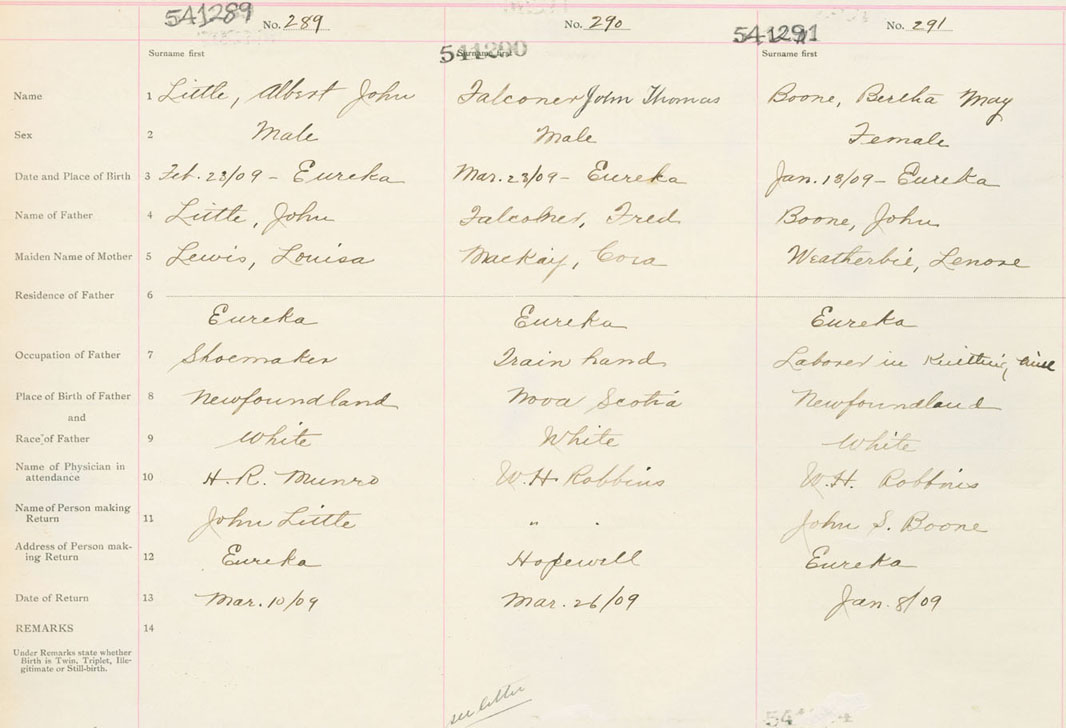 541289 No. 289 No. 290 541291 No. 291
Surname first 541290 Surname first Surname first
Name 1 Little, Albert John Falconer John Thomas Boone, Bertha May
Sex 2 Male Male Female
Date and Place of Birth 3 Feb. 23/09 - Eureka Mar. 23/09 - Eureka Jan. 13/09 - Eureka
Name of Father 4 Little, John Falconer, Fred Boone, John
Maiden Name of Mother 5 Lewis, Louisa MacKay, Cora Weatherbie, Lenore
Residence of Father 6
Eureka Eureka Eureka
Occupation of Father 7 Shoemaker Train hand Laborer in Knitting
Place of Birth of Father 8 Newfoundland Nova Scotia Newfoundland
and
Race of Father 9 White White White
Name of Physician in
attendance 10 H. R. Munro W. H. Robbins W. H. Robbins
Name of Person making
Return 11 John Little " " John S. Boone
Address of Person mak-
ing Return 12 Eureka Hopewell Eureka
Date of Return 13 Mar. 10/09 Mar. 26/09 Jan. 8/09
REMARKS 14
Under Remarks state whether
Birth is Twin, Triplet, Ille-
gitimate or Still-birth.
see